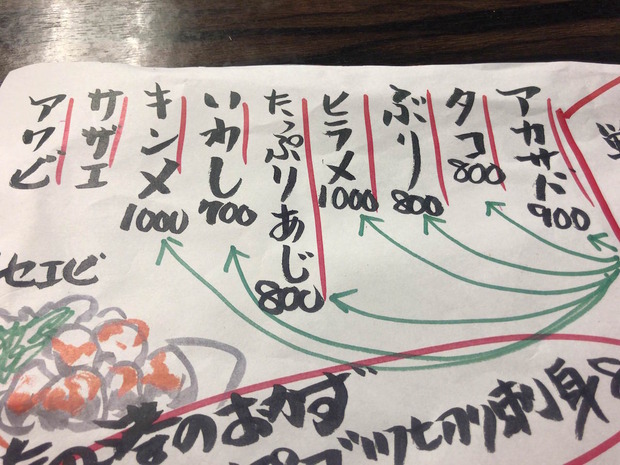 アカサバ 900
タコ 800
ぶり 800
ヒラメ 1000
たっぷりあじ 800
いわし 700
キンメ 1000
サザエ
アワビ
セエビ
者のおかず
ブツ切り刺身